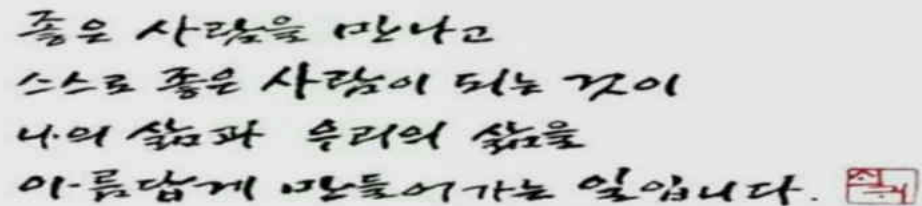 좋은 사람을 만나고
스스로 좋은 사람이 되는 것이
나의 삶과 우리의 삶을
아름답게 만들어가는 일입니다.